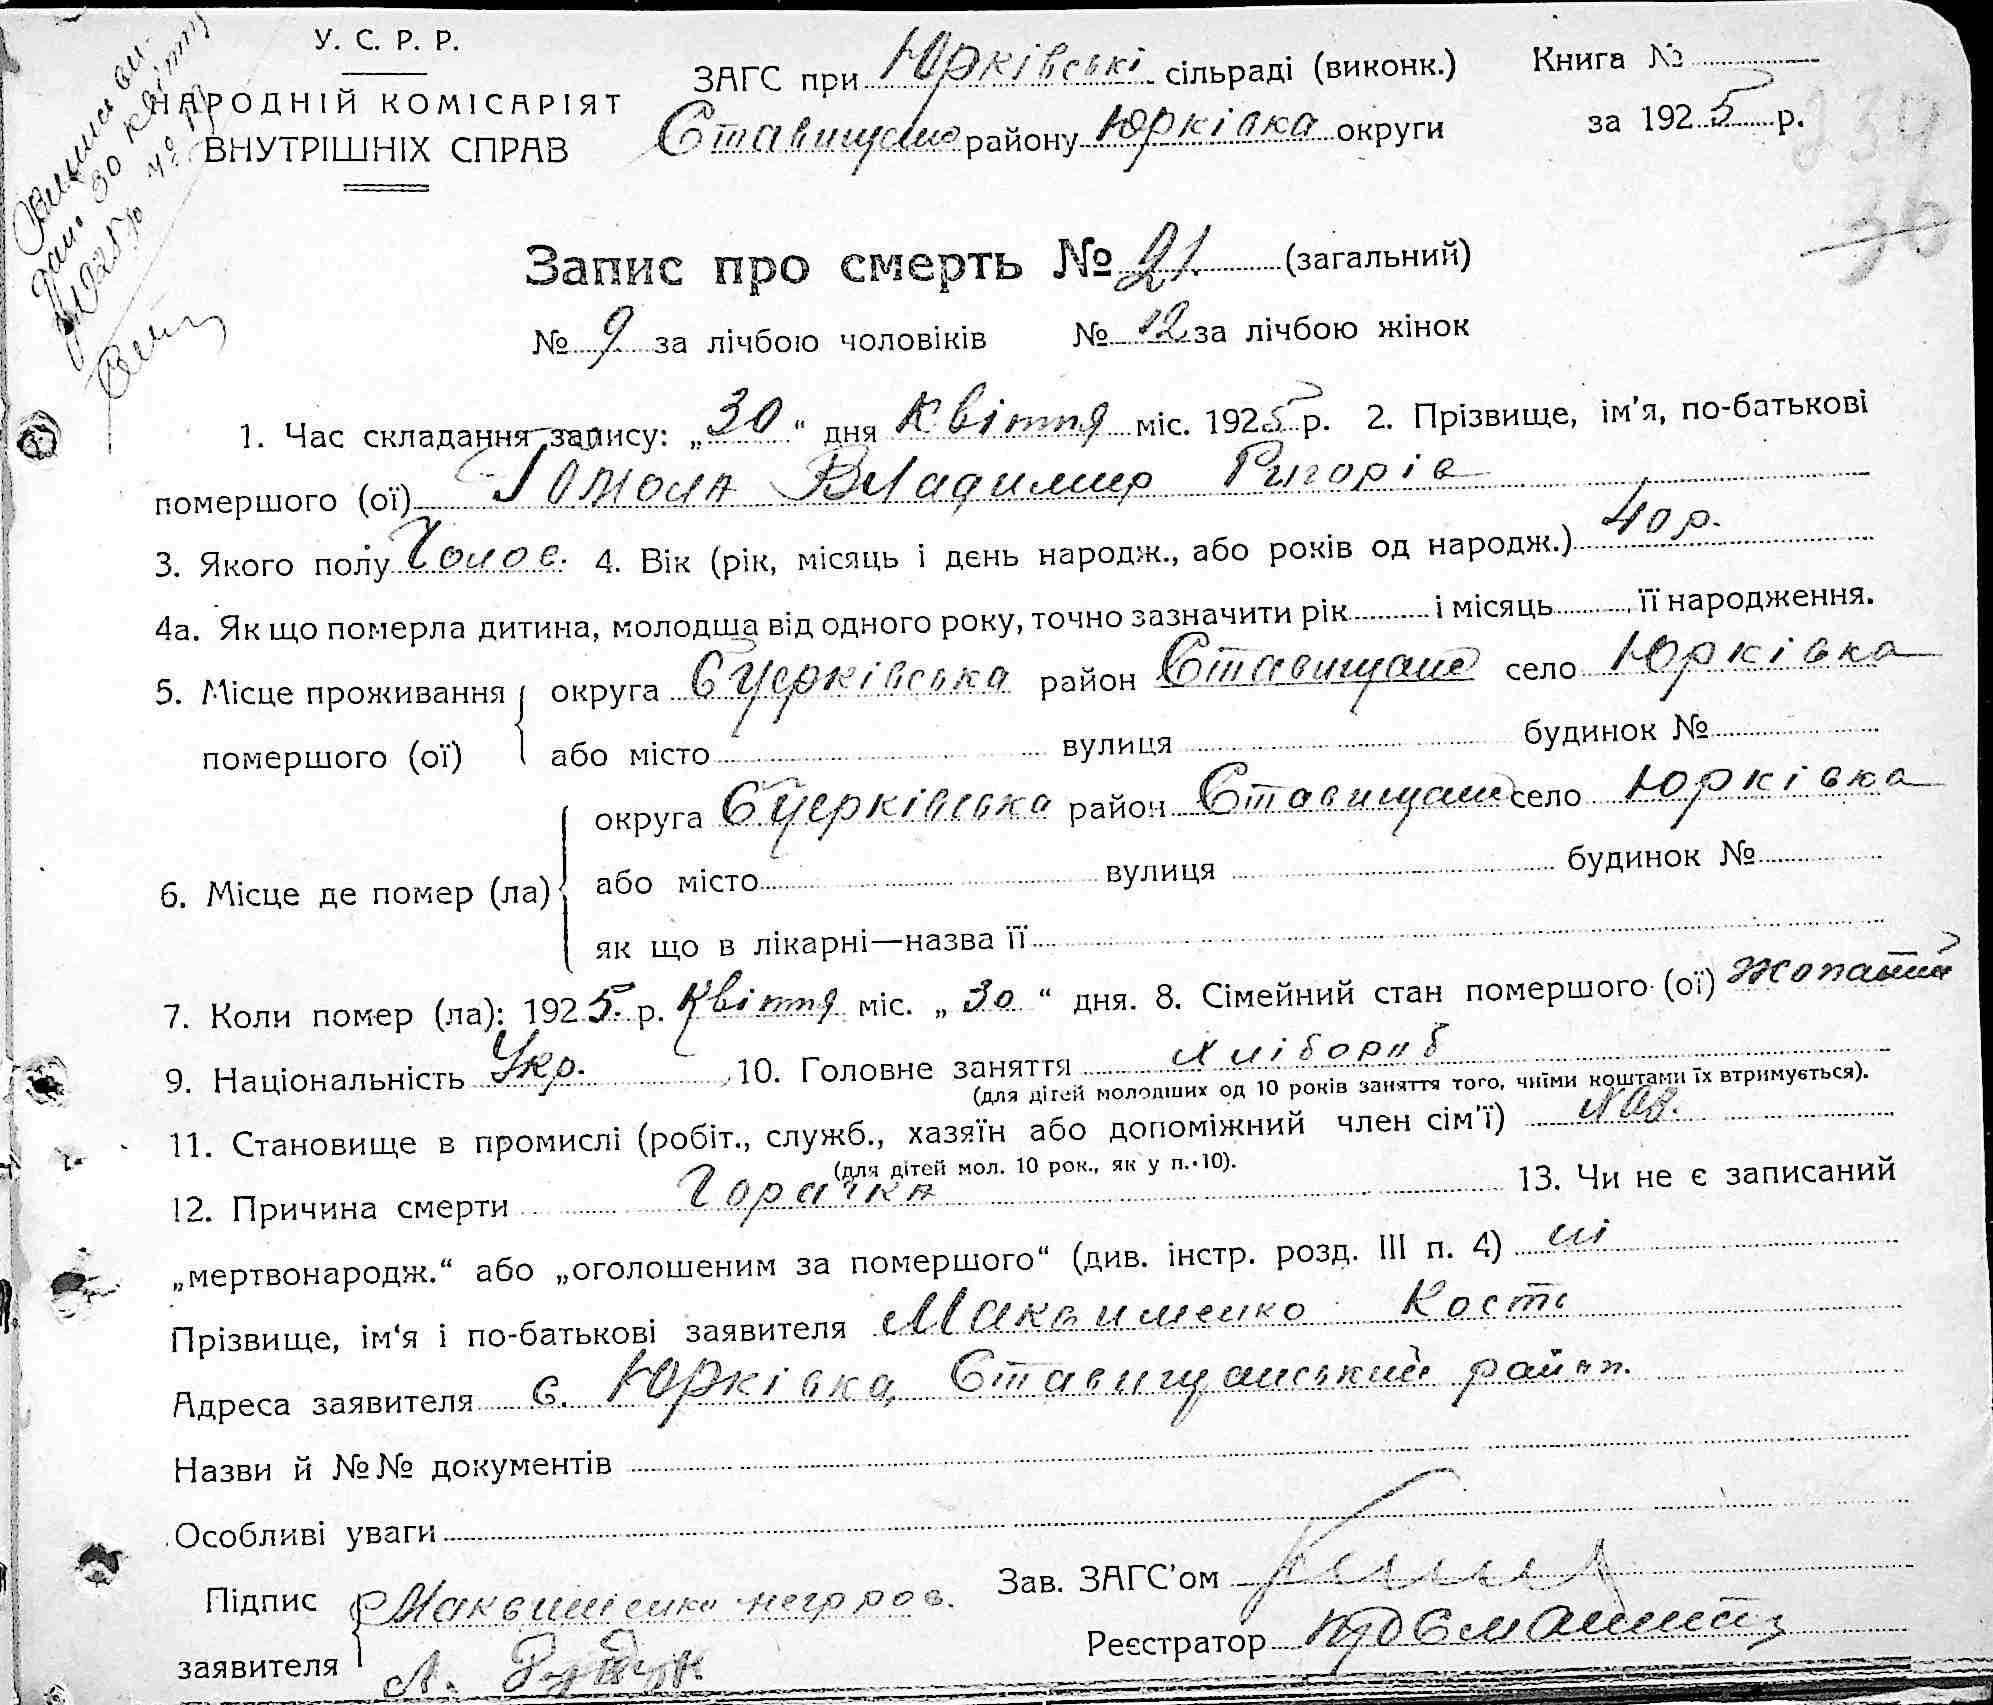 У. С. Р. Р.
НАРОДНІЙ КОМІСАРІЯТ
ВНУТРІШНІХ СПРАВ
ЗАГС при Юрківські сільраді (виконк.) Книга №
Ставищане району Юрківка округи за 1925 р.
234
36
Виписи ви-
дано 30 квітня
1925 р № 19
Запис про смерть № 21. (загальний)
№ 9 за лічбою чоловіків № 12 за лічбою жінок
1. Час складання запису: „30" дня Квітня міс. 1925 р. 2. Прізвище, ім'я, по-батькові
помершого (ої) Гомоля Владимир Ригорів
3. Якого полу Чолов. 4. Вік (рік, місяць і день народж., або років од народж.) 40 р.
4а. Як що померла дитина, молодша від одного року, точно зазначити рік і місяць її народження.
5. Місце проживання округа Бцерківська район Ставищане село Юрківка
помершого (ої) або місто вулиця будинок №
округа Бцерківська район Ставищане село Юрківка
6. Місце де помер (ла) або місто вулиця будинок №
як що в лікарні—назва її
7. Коли помер (ла): 1925. р. Квітня міс. „30" дня. 8. Сімейний стан помершого (ої) жонатий
9. Національність Укр. 10. Головне заняття хлібороб
(для дітей молодших од 10 років заняття того, чиїми коштами їх втримується).
11. Становище в промислі (робіт., служб., хазяїн або допоміжний член сім'ї)
(для дітей мол. 10 рок., як у п. 10).
12. Причина смерти Горячка 13. Чи не є записаний
„мертвонародж." або „оголошеним за помершого" (див. інстр. розд. III п. 4) ні
Прізвище, ім'я і по-батькові заявителя Максименко Кость
Адреса заявителя с. Юрківка Ставищанський район.
Назви й №№ документів
Особливі уваги
Підпис Максименко негров. Зав. ЗАГС'ом
заявителя А. Реєстратор